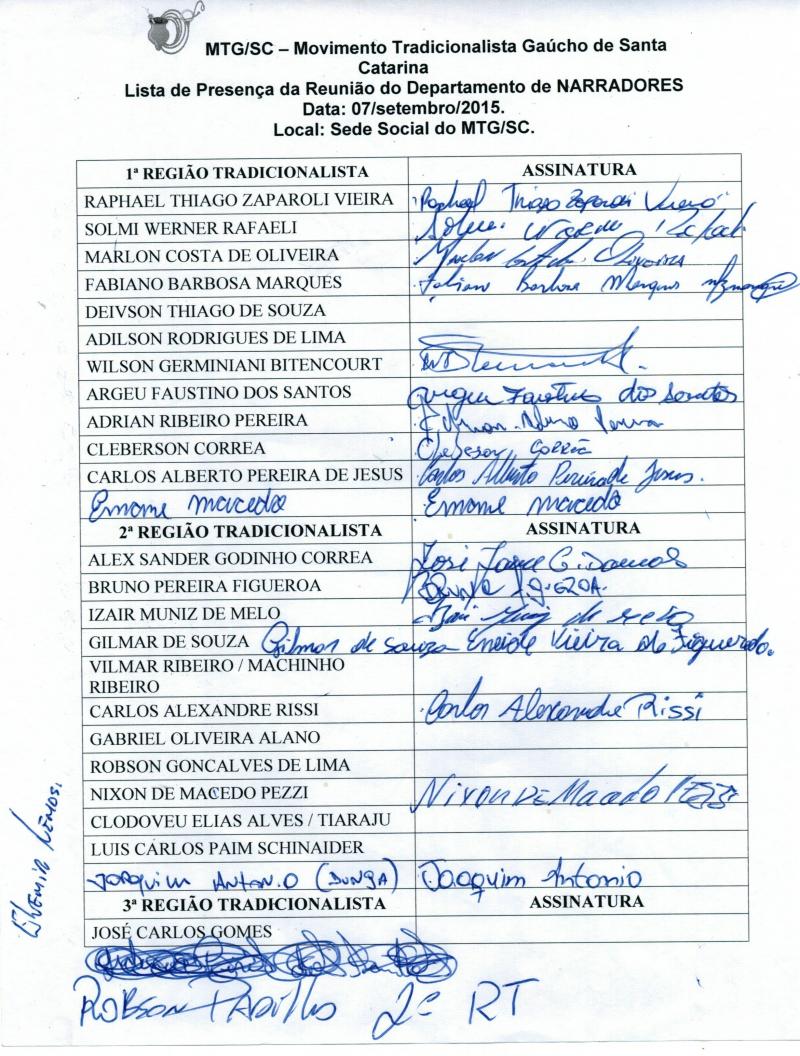 MTG/SC – Movimento Tradicionalista Gaúcho de Santa
Catarina
Lista de Presença da Reunião do Departamento de NARRADORES
Data: 07/setembro/2015.
Local: Sede Social do MTG/SC.
1ª REGIÃO TRADICIONALISTA ASSINATURA
RAPHAEL THIAGO ZAPAROLI VIEIRA Raphael Thiago Zaparoli Vieira
SOLMI WERNER RAFAELI
MARLON COSTA DE OLIVEIRA Marlon Costa de Oliveira
FABIANO BARBOSA MARQUES Fabiano Barbosa Marques
DEIVSON THIAGO DE SOUZA
ADILSON RODRIGUES DE LIMA
WILSON GERMINIANI BITENCOURT
ARGEU FAUSTINO DOS SANTOS Argeu Faustino dos Santos
ADRIAN RIBEIRO PEREIRA Adrian Pereira
CLEBERSON CORREA Cleberson Corrêa
CARLOS ALBERTO PEREIRA DE JESUS Carlos Alberto Pereira de Jesus.
Macedo Macedo
2ª REGIÃO TRADICIONALISTA ASSINATURA
ALEX SANDER GODINHO CORREA José
BRUNO PEREIRA FIGUEROA Bruno
IZAIR MUNIZ DE MELO Izair Muniz de Melo
GILMAR DE SOUZA Gilmar de Souza Eneide Vieira de Figueredo.
VILMAR RIBEIRO / MACHINHO
RIBEIRO
CARLOS ALEXANDRE RISSI Carlos Alexandre Rissi
GABRIEL OLIVEIRA ALANO
ROBSON GONCALVES DE LIMA
NIXON DE MACEDO PEZZI Nixon De Macedo Pezzi
CLODOVEU ELIAS ALVES / TIARAJU
LUIS CARLOS PAIM SCHINAIDER
JOAQUIM ANTONIO (DUNGA) Joaquim Antonio
3ª REGIÃO TRADICIONALISTA ASSINATURA
JOSÉ CARLOS GOMES
ROBSON PADILHA 2ª RT